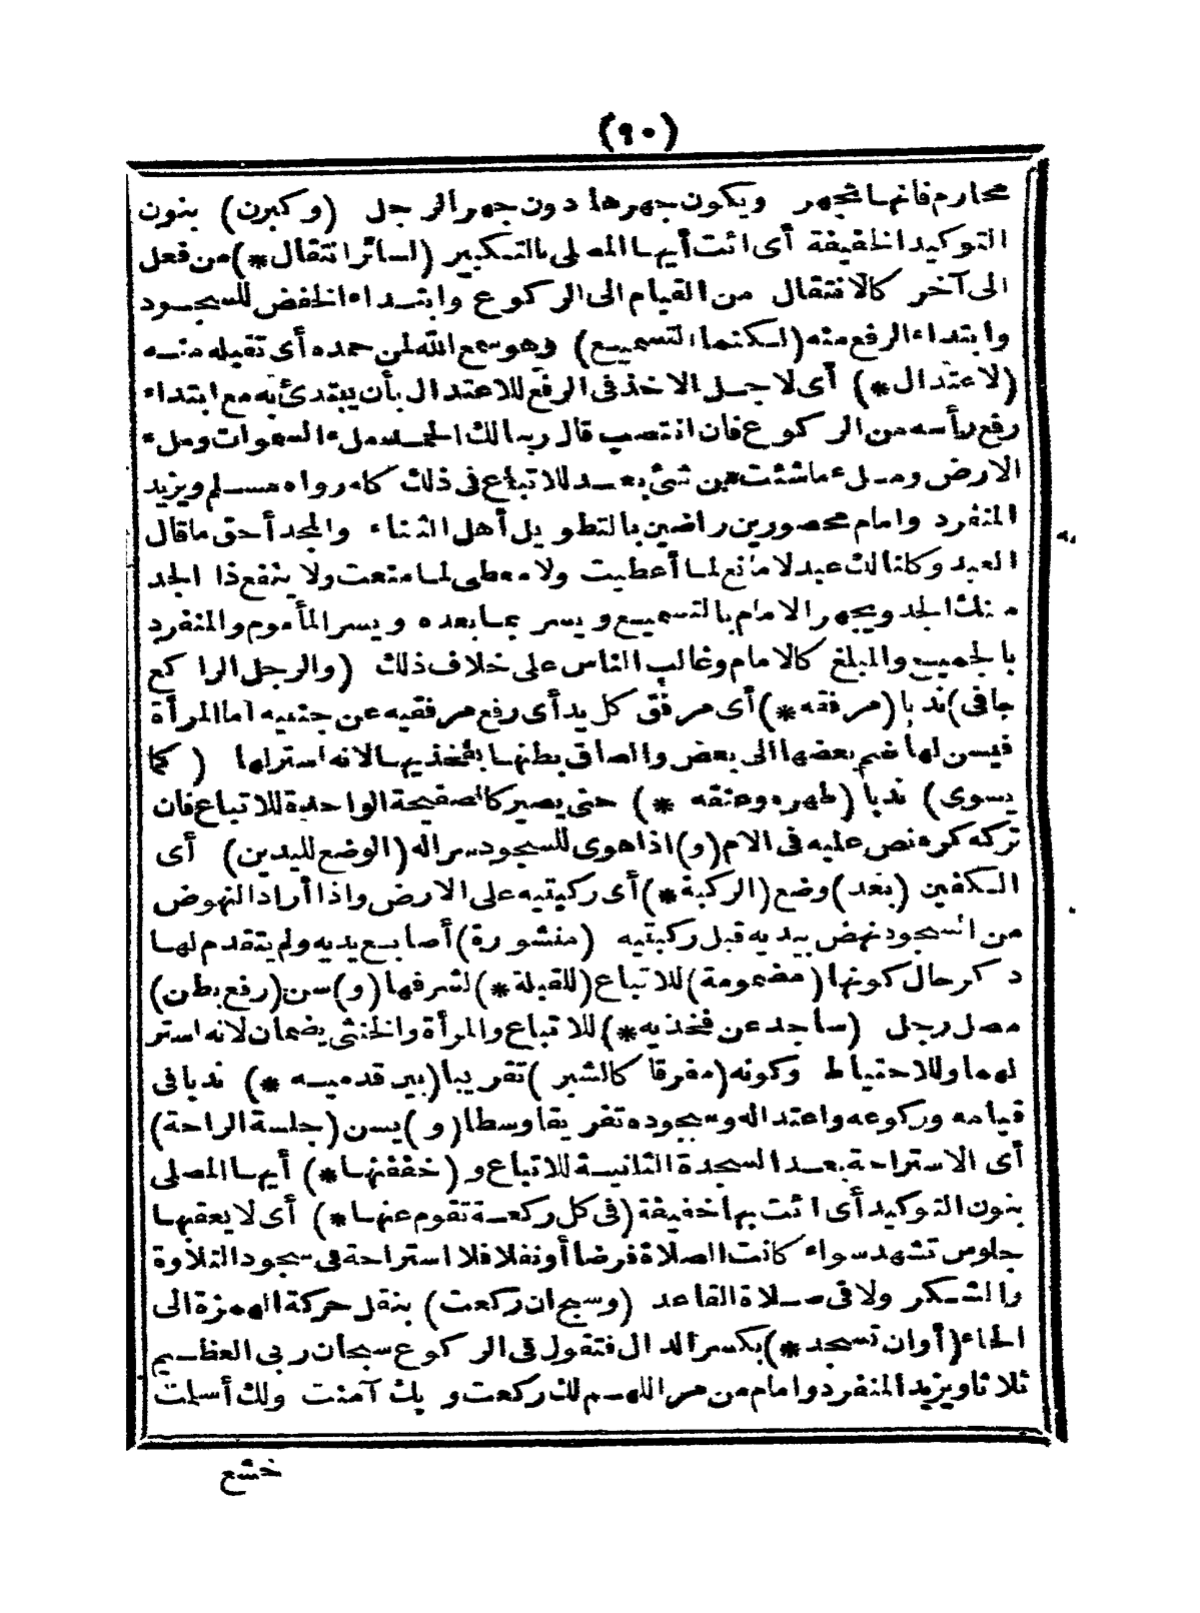 (٩٠)
محارم فانها تجهر ويكون جهرها دون جهر الرجل (وكبرن) بنون
التوكيد الخفيفة أى ائت أيها المصلى بالتكبير (لسائر انتقال *) من فعل
الى آخر كالانتقال من القيام الى الركوع وابتداء الخفض للسجود
وابتداء الرفع منه (لكنما التسميع) وهو سمع الله لمن حمده أى تقبله منه
(لاعتدال *) أى لاجل الاخذ فى الرفع للاعتدال بأن يبتدئ به مع ابتداء
رفع رأسه من الركوع فان انتصب قال ربنا لك الحمد ملء السموات وملء
الارض وملء ما شئت من شئ بعد للاتباع فى ذلك كله رواه مسلم ويزيد
المنفرد وامام محصورين راضين بالتطويل أهل الثناء والمجد أحق ماقال
العبد وكلنا لك عبد لا مانع لما أعطيت ولا معطى لما منعت ولا ينفع ذا الجد
منك الجد ويجهر الامام بالتسميع ويسر بما بعده ويسر المأموم والمنفرد
بالجميع والمبلغ كالامام وغالب الناس على خلاف ذلك (والرجل الراكع
جافى) ندبا (مرفقه *) أى مرفق كل يد أى رفع مرفقيه عن جنبيه اما المرأة
فيسن لها ضم بعضها الى بعض والصاق بطنها بفخذيها لانه استر لها (كما
يسوى) ندبا (ظهره وعنقه *) حتى يصير كالصفيحة الواحدة للاتباع فان
تركه كره نص عليه فى الام (و) اذا هوى للسجود سن له (الوضع لليدين) أى
الكفين (بعد) وضع (الركبة *) أى ركبتيه على الارض واذا أراد النهوض
من السجود نهض بيديه قبل ركبتيه (منشورة) أصابع يديه ولم يتقدم لها
ذكر حال كونها (مضمومة) للاتباع (للقبلة *) لشرفها (و) سن (رفع بطن)
مصل رجل (ساجد عن فخذيه *) للاتباع والمرأة والخنثى يضمان لانه استر
لهما وللاحتياط وكونه (مفرقا كالشبر) تقريبا (بين قدميه *) ندبا فى
قيامه وركوعه واعتداله وسجوده تفريقا وسطا (و) يسن (جلسة الراحة)
أى الاستراحة بعد السجدة الثانية للاتباع و (خففنها *) أيها المصلى
بنون التوكيد أى ائت بها خفيفة (فى كل ركعة تقوم عنها *) أى لا يعقبها
جلوس تشهد سواء كانت الصلاة فرضا أو نفلا فلا استراحة فى سجود التلاوة
والشكر ولا فى صلاة القاعد (وسبح ان ركعت) بنقل حركة الهمزة الى
الحاء (أوان تسجد *) بكسر الدال فتقول فى الركوع سبحان ربى العظيم
ثلاثا ويزيد المنفرد وامام من مر اللهم لك ركعت وبك آمنت ولك أسلمت
خشع